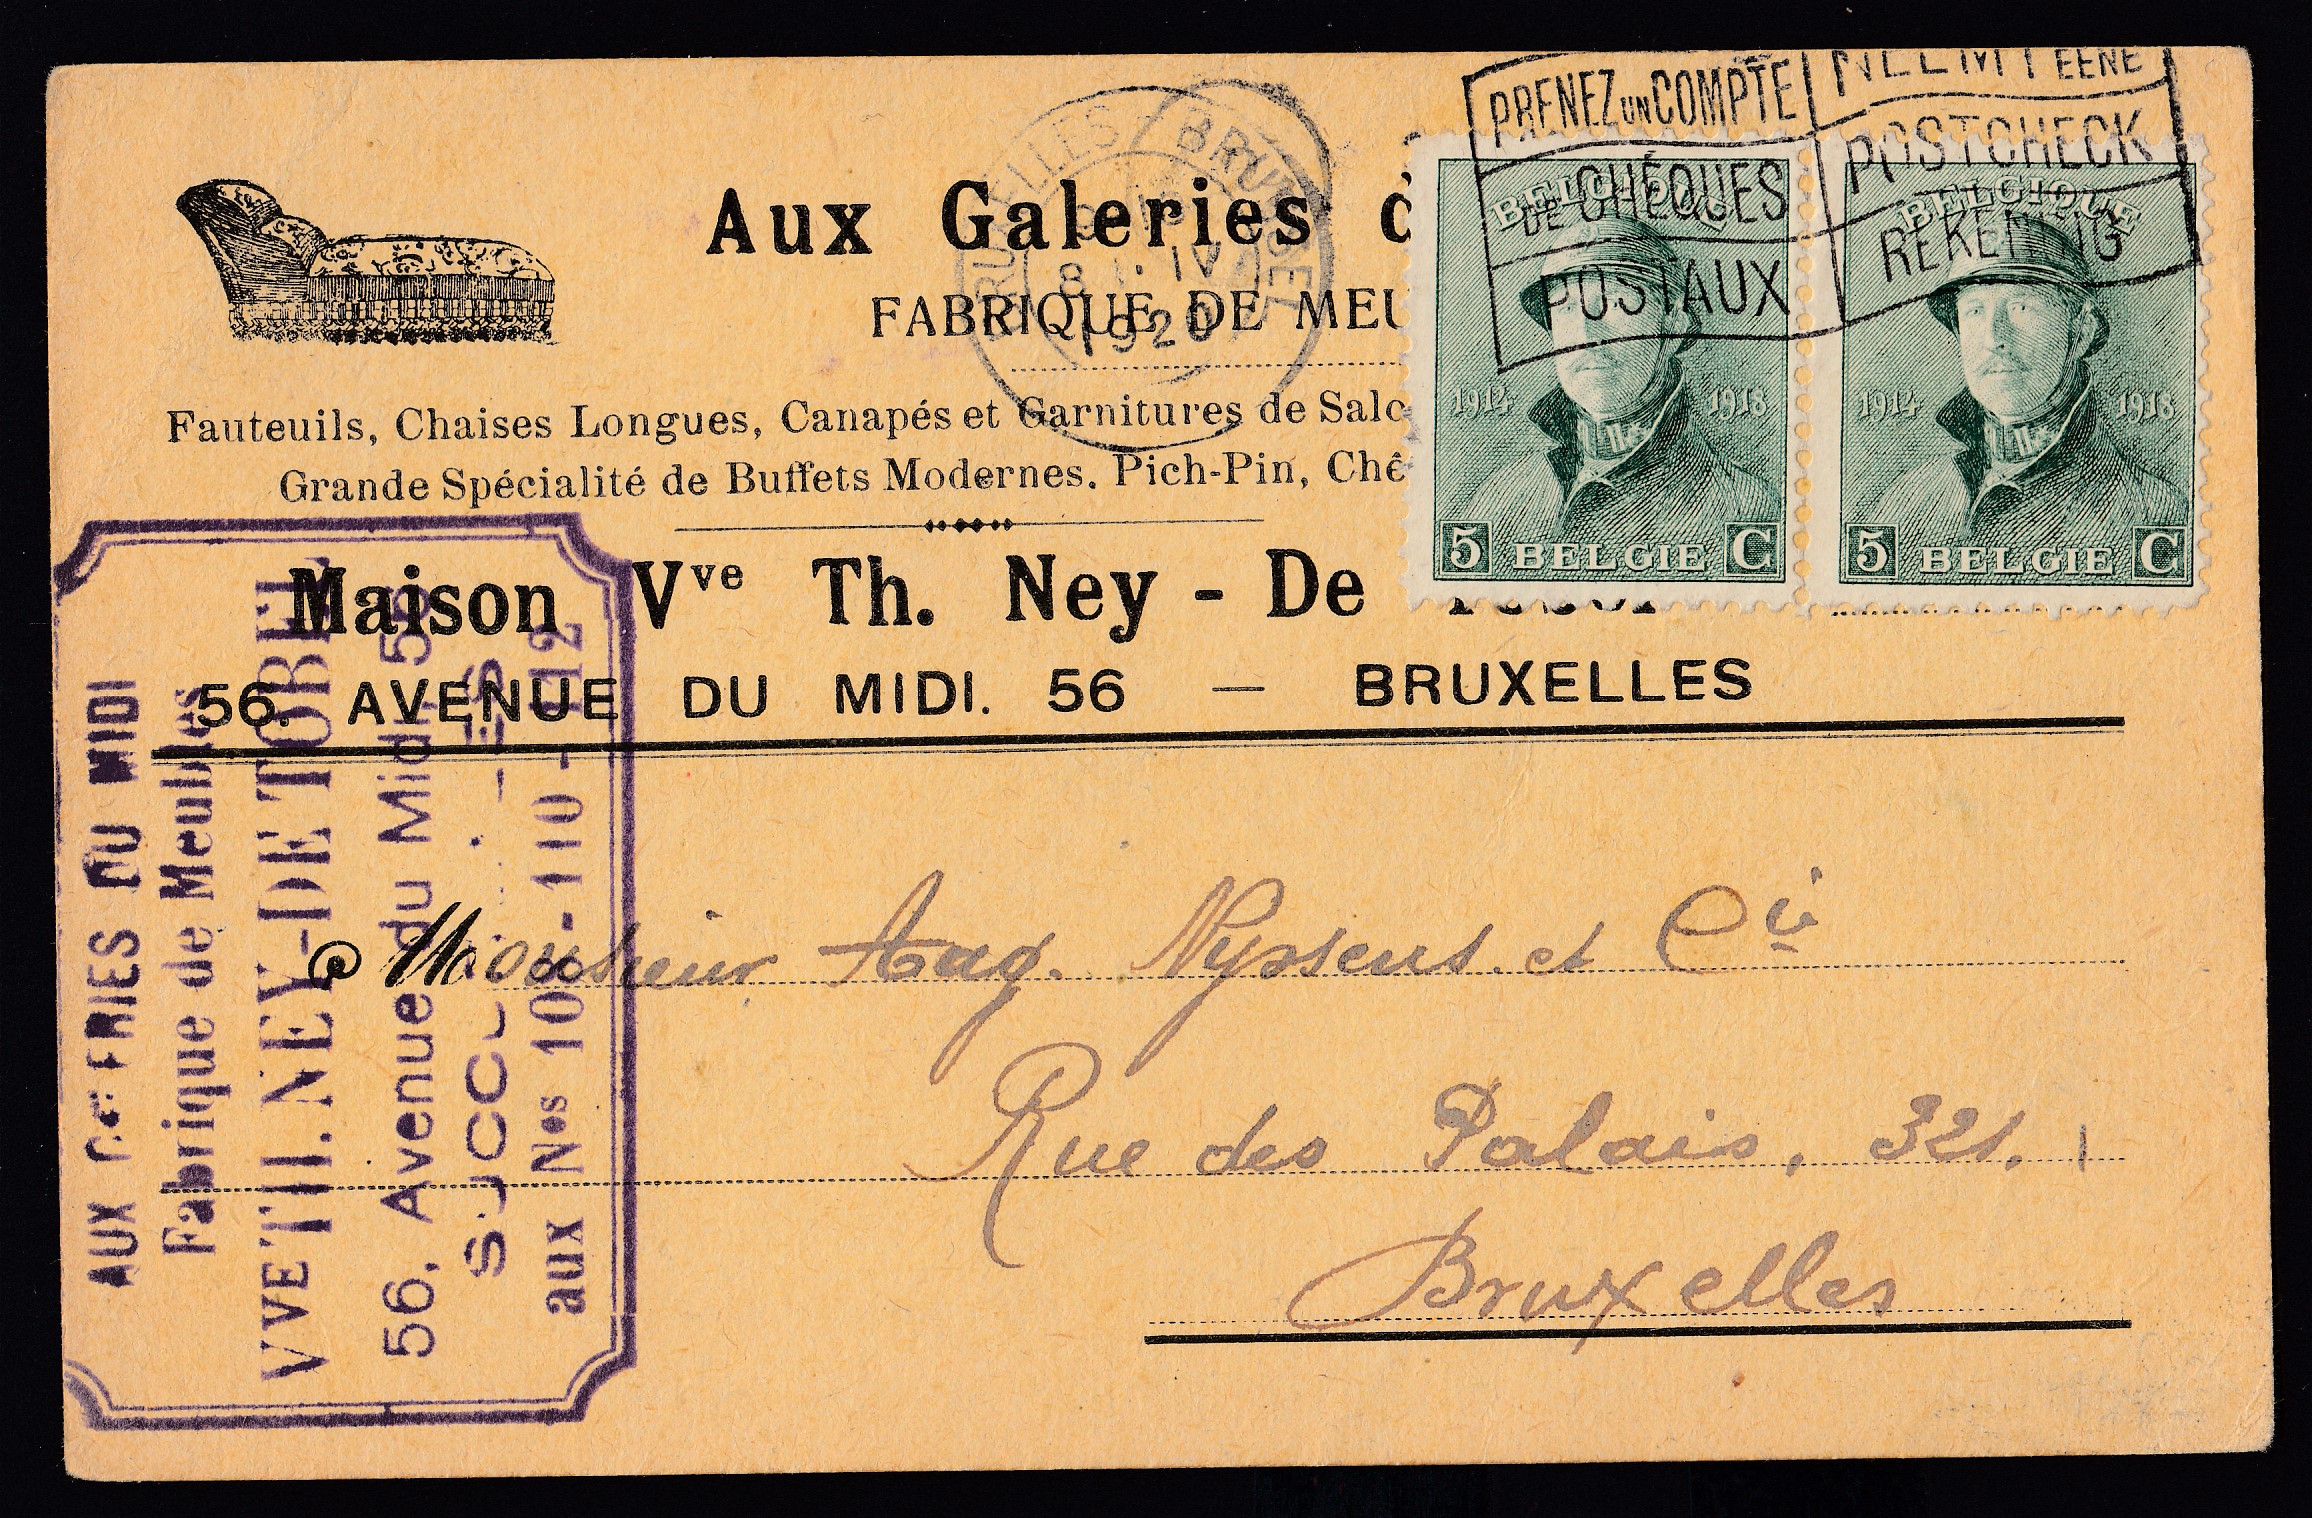 Aux Galeries d
FABRIQUE DE MEU
Fauteuils, Chaises Longues, Canapés et Garnitures de Salo
Grande Spécialité de Buffets Modernes. Pich-Pin, Chê
Maison Vve Th. Ney - De
56. AVENUE DU MIDI. 56 — BRUXELLES
BRUXELLES BRUSSEL
8 IV
1920
PRENEZ UN COMPTE
DE CHÈQUES
POSTAUX
NEEMT EENE
POSTCHECK
REKENING
BELGIQUE
1914 1918
5 BELGIE C
BELGIQUE
1914 1918
5 BELGIE C
Monsieur Aug. Nyssens et Cie
Rue des Palais, 321.
Bruxelles
AUX GALERIES DU MIDI
Fabrique de Meubles
VVE TH. NEY-DE TOBEL
56, Avenue du Midi, 56
aux Nos 108-110-112